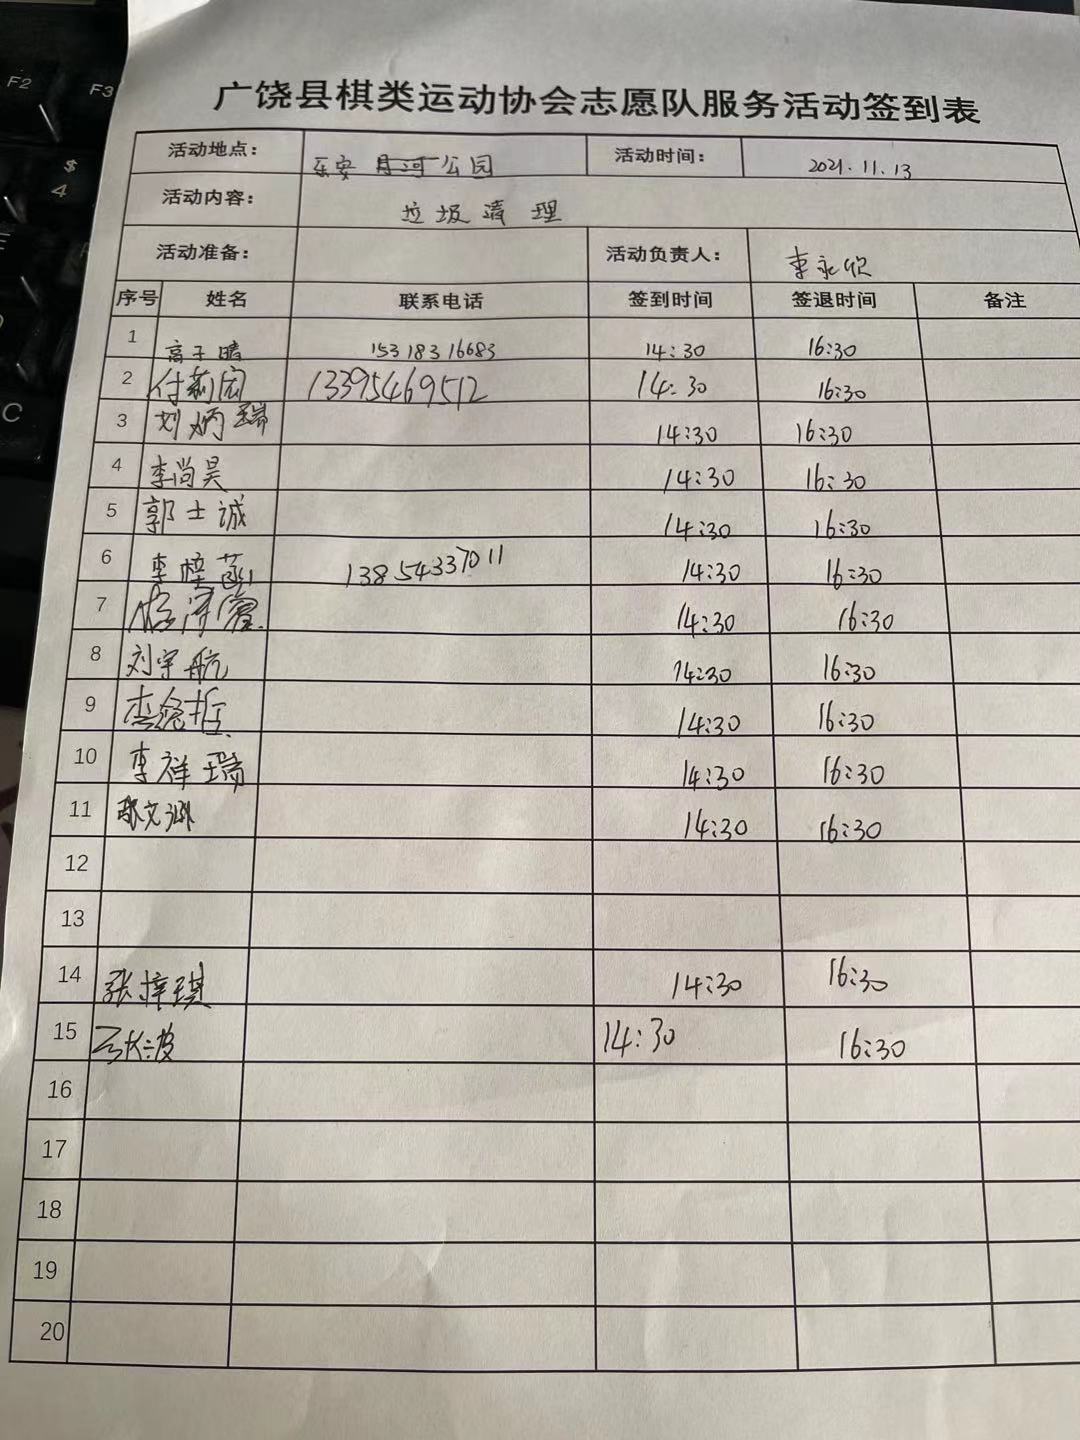 F2
F3
$
4
C
广饶县棋类运动协会志愿队服务活动签到表
活动地点： 乐安 月河公园 活动时间： 2021.11.13
活动内容： 垃圾清理
活动准备： 活动负责人： 李永欣
序号 姓名 联系电话 签到时间 签退时间 备注
1 高子晴 15318316683 14:30 16:30
2 付莉宏 13395469512 14:30 16:30
3 刘炳瑞 14:30 16:30
4 李尚昊 14:30 16:30
5 郭士诚 14:30 16:30
6 李 13854337011 14:30 16:30
7 14:30 16:30
8 刘宇航 14:30 16:30
9 14:30 16:30
10 李祥瑞 14:30 16:30
11 14:30 16:30
12
13
14 张梓琪 14:30 16:30
15 14:30 16:30
16
17
18
19
20